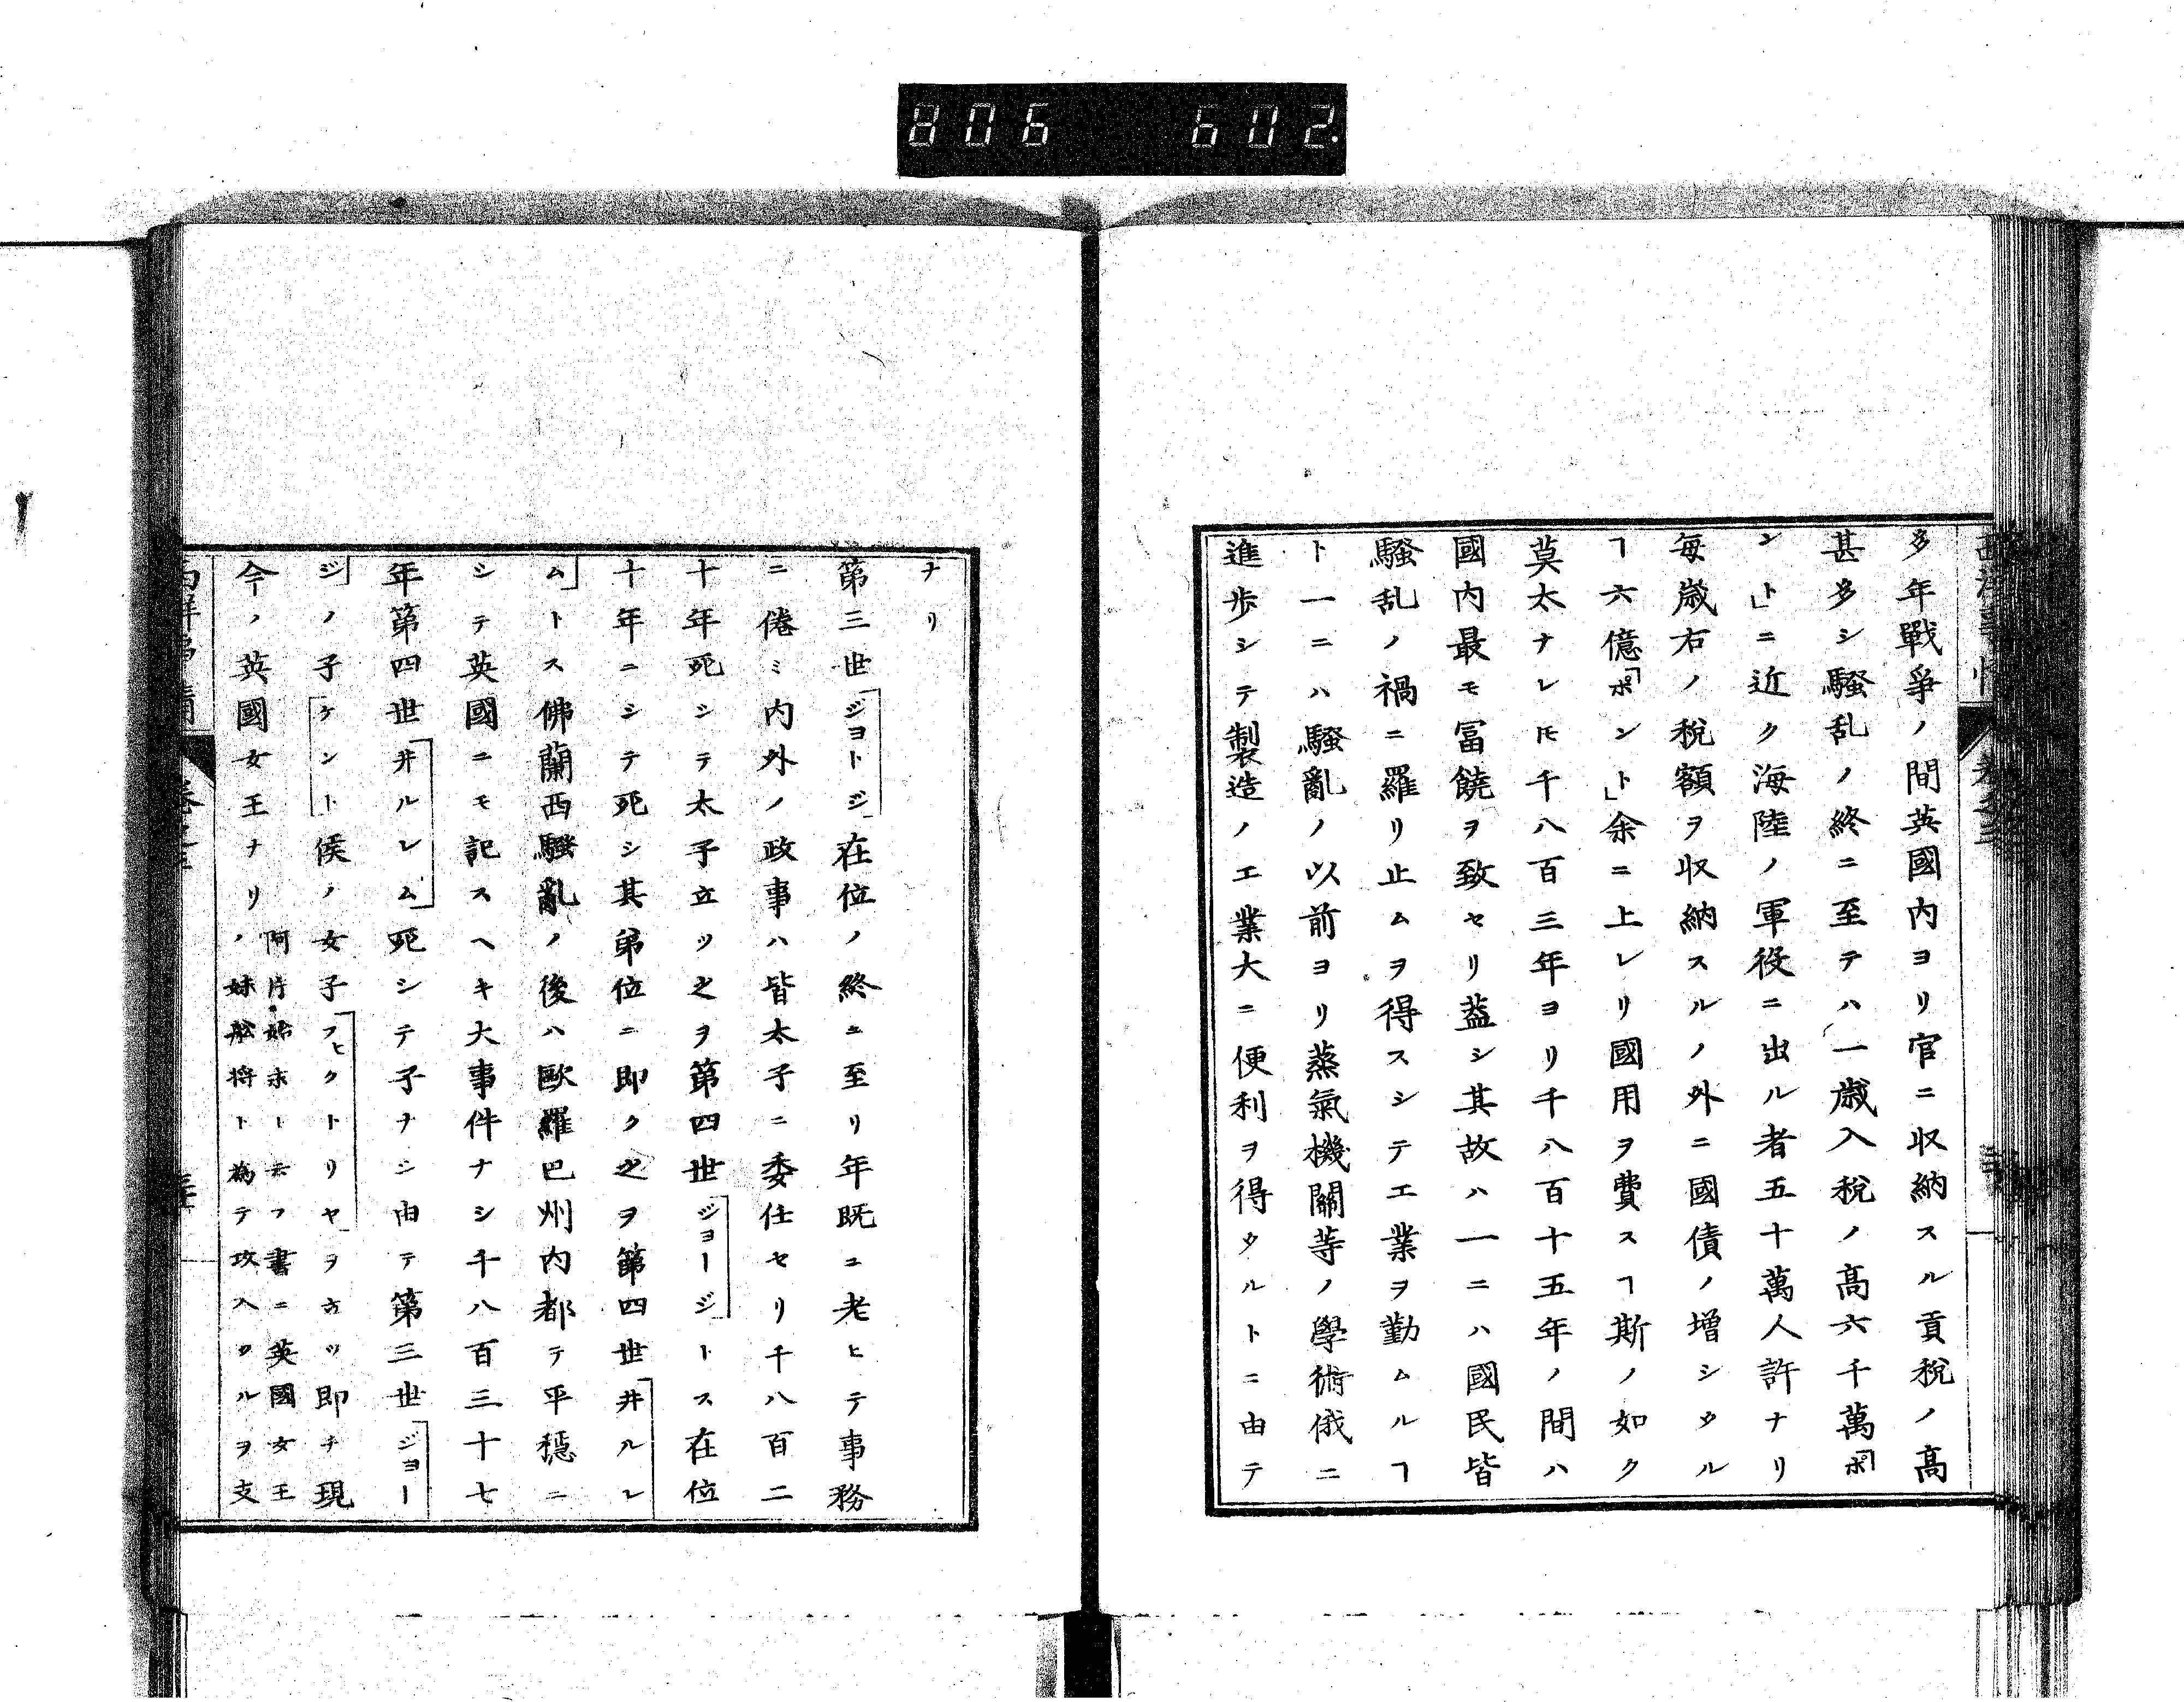 806 602.
多年戰爭ノ間英國內ヨリ官ニ収納スル貢稅ノ高
甚多シ騷乱ノ終ニ至テハ一歳入稅ノ高六千萬「ポ
ンド」ニ近ク海陸ノ軍役ニ出ル者五十萬人許ナリ
毎歳右ノ稅額ヲ収納スルノ外ニ國債ノ增シタル
ヿ六億「ポンド」余ニ上レリ國用ヲ費スヿ斯ノ如ク
莫太ナレㇳモ千八百三年ヨリ千八百十五年ノ間ハ
國內最モ冨饒ヲ致セリ蓋シ其故ハ一ニハ國民皆
騷乱ノ禍ニ羅リ止ムヲ得スシテ工業ヲ勤ムルヿ
ト一ニハ騷亂ノ以前ヨリ蒸氣機關等ノ學術俄ニ
進歩シテ製造ノ工業大ニ便利ヲ得タルトニ由テ
ナリ
第三世「ジヨトジ」在位ノ終ニ至リ年既ニ老ヒテ事務
ニ倦ミ內外ノ政事ハ皆太子ニ委任セリ千八百二
十年死シテ太子立ツ之ヲ第四世「ジヨージ」トス在位
十年ニシテ死シ其弟位ニ即ク之ヲ第四世「井ルレ
ム」トス佛蘭西騷亂ノ後ハ歐羅巴州內都テ平穩ニ
シテ英國ニモ記スヘキ大事件ナシ千八百三十七
年第四世「井ルレム」死シテ子ナシ由テ第三世「ジヨー
ジ」ノ子「ケント」侯ノ女子「フヒクトリヤ」ヲ立ツ即チ現
今ノ英國女王ナリ
阿片始末ト云フ書ニ英國女王
ノ妹舩將ト為テ攻入タルヲ支